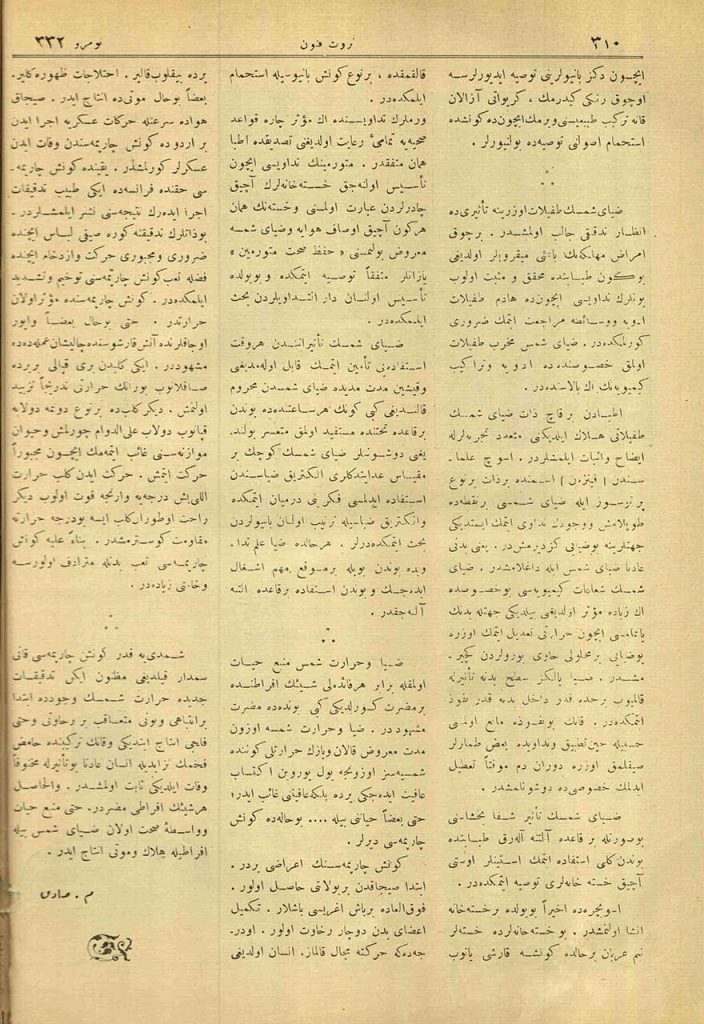 ٣١٠
ثروت فنون
نومرو ٣٣٢
ایچــون دكز بانیولرینی توصیه ایدیورلرســه
اوچوق رنكی كیدرمك، كریواتی آزالان
قانه تركیب طبیعیسنی ویرمك ایچون‌ده كونشده
استحمام اصولنی توصیه‌ده بولنیورلر .
ضیای شمسك طفیلات اوزرینه تأثیری‌ده
انظار تدقیقی جالب اولمشدر . برچوق
امراض مهلكه‌نك باعثی میقروبلر اولدیغی
بوكــون طبــابتده محقق و مثبت اولوب
بونلرك تداویسی ایچون‌ده هادم طفیلات
ادویه ووسائطه مراجعت ایتمك ضروری
كورلمكده‌در . ضیای شمس مخرب طفیلات
اولمق خصــوصنده ادویه وتراكیب
كیمیویه‌نك اك بالاسنده‌در .
اطبــادن برقاچ ذات ضیای شمســك
طفیلاتی هــلاك ایلدیكنی متعدد تجربه‌لرله
ایضاح واثبات ایلمشلردر . اسوچ علمــا-
سندن [ فینزن ] اسمنده برذات برنوع
پرتوسوز ایله ضیای شمسی برنقطه‌ده
طوپلامش ووجودك تداوی ایتمك ایستدیكی
جهتلرینه بوضیایی كزدیرمش‌در . یعنی بدنی
عادتا ضیای شمس ایله داغلامشدر . ضیای
شمسك شعاعات كیمیویه‌سی بوخصوصده
اك زیاده مؤثر اولدیغنی بیلدیكی جهتله بدنك
یانماسی ایچون حرارتی تعدیل ایتمك اوزره
بوضیایی برمحلولی حاوی بورولردن كچیر-
مشدر . ضیا یالكز سطح بدنه تأثیرله
قالمیوب برحده قدر داخل بدنه قدر نفوذ
ایتمكده‌در . قانك بونفوذه مانع اولمسی
حسبیله حین تطبیق وتداویده بعض طمارلر
صیقلمق اوزره دوران دم موقتاً تعطیل
ایدلمك خصوصی‌ده دوشونلمشدر .
ضیای شمسك تأثیر شفا بخشاسنی
بوصورتله بر قاعده آلتنه آله‌رق طبــابتده
بوندن كلی استفاده ایتمك ایستینلر اوستی
آچیق خسته خانه‌لری توصیه ایتمكده‌در .
اسویچره‌ده اخیراً بویولده برخسته‌خانه
انشا اولنمشدر . بوخسته‌خانه‌لرده خسته‌لر
نیم عریان برحالده كونشــه قارشی یاتوب
قالقمقده ، برنوع كونش بانیوسیله استحمام
ایلمكده‌در .
ورملرك تداویسنده اك مؤثر چاره قواعد
صحیه‌یه تمامیٔ رعایت اولدیغنی تصدیقده اطبا
همان متفقدر . متورمینك تداویسی ایچون
تأسیس اولنه‌جق خسته‌خانه‌لرك آچیق
چادرلردن عبارت اولمسنی وخسته‌نك همان
هركون آچیق اوصاف هوایه وضیای شمسه
معروض بولنمسنی « حفظ صحت متورمین »
یازانلر متفقاً توصیه ایتمكده وبویولده
تأسیس اولنــان دار التــداویلردن بحث
ایلمكده‌در .
ضــیای شمسك تأثیراتنــدن هروقت
استفاده‌نی تأمین ایتمك قابل اوله‌مدیغی
وقیشین مدت مدیده ضیای شمسدن محروم
قالنــدیغی كبی كونك هرســاعتنده‌ده بوندن
برقاعده تحتنده مستفید اولمق متعسر بولند-
یغنی دوشــونلر ضیای شمسك كوچك بر
مقیــاس عدایتدكلری الكتریق ضیاســندن
استفاده ایدلمسی فكرنی درمیان ایتمكده
والكتریق ضیاسیله ترتیب اولنان بانیولردن
بحث ایتمكده‌درلر . هرحالده ضیا علم تدا-
ویده بوندن بویله برموقع مهم اشــغال
ایده‌جك و بوندن استفاده برقاعده آلتنه
آلنه‌جقدر .
ضــیا وحرارت شمس منبع حیــات
اولمقله برابر هرفائده‌لی شیئك افراطنــده
برمضرت كــورلدیكی كبی بونده‌ده مضرت
مشهوددر . ضیا وحرارت شمسه اوزون
مدت معروض قالان ویازك حرارتلی كوننده
شمسیه‌سز اوزونجه یول یورویین اكتساب
عافیت ایده‌جكی یرده بلكه‌عافیتنی غائب ایدر ؛
حتی بعضاً حیاتنی بیله .... بوحاله‌ده كونش
چارپمه‌سی دیرلر .
كونش چارپمه‌سنك اعراضی بردر .
ابتدا صیجاقدن بربولانتی حاصل اولور .
فوق‌العاده برباش آغریسی باشلار . تكمیل
اعضای بدن دوچار رخاوت اولور . اودر-
جه‌ده‌كه حركته مجال قالماز . انسان اولدیغی
یرده ییقلوب‌قالیر . احتلاجات ظهوره‌كلیر .
بعضاً بوحال موتی‌ده انتاج ایدر . صیجاق
هواده سرعتله حركات عسكریه اجرا ایدن
بر اردوده كونش چارپمه‌سندن وفات ایدن
عسكرلر كورلمشدر . یقینده كونش چارپمه-
سی حقنده فرانسه‌ده ایكی طبیب تدقیقات
اجرا ایده‌رك نتیجه‌سنی نشر ایلمشلردر .
بوذاتلرك تدقیقنه كوره صیقی لباس ایچنده
ضروری ومجبوری حركت وازدحام ایچنده
فضله تعب كونش چارپمه‌سنی توخیم وتشدید
ایلمكده‌در . كونش چارپمه‌سنده مؤثر اولان
حرارتدر . حتی بوحال بعضــاً واپور
اوجاقلرنده آتش قارشوسنده چالیشان عمله‌ده‌ده
مشهوددر . ایكی كلبدن بری قپالی بریرده
صــاقلانوب بورانك حرارتی تدریجاً تزیید
اولنمش . دیكر كلب‌ده برنوع دونمه دولابه
قپانوب دولاب علی‌الدوام چورلمش وحیوان
موازنه‌سنی غائب ایتمه‌مك ایچــون مجبوراً
حركت ایتمش . حركت ایدن كلب حرارت
اللی‌بش درجه‌یه وارنجه فوت اولوب دیكر
راحت اوطوران كلب ایسه بودرجه حرارته
مقاومت كوســترمشدر . بناءً علیه كونش
چارپمه‌سی تعب بدنله مترادف اولورســه
وخامتی زیاده‌در .
شــمدی‌یه قدر كونش چارپمه‌سی قانی
سمدار قیلدیغی مظنون ایكن تدقیقــات
جدیده حرارت شمســك وجودده ابتدا
برانتباهی وبونی متعــاقب بر رخاوتی وحتی
فلجی انتاج ایتدیكی وقانك تركیبنده حامض
فحمك تزایدیله انسان عادتا بوتأثیرله مختنوقاً
وفات ایلدیكی ثابت اولمشــدر . والحاصــل
هرشیئك افراطی مضردر. حتی منبع حیات
وواسطهٔ صحت اولان ضــیای شمس بیله
افراطیله هلاك وموتی انتاج ایدر .
م . صادق